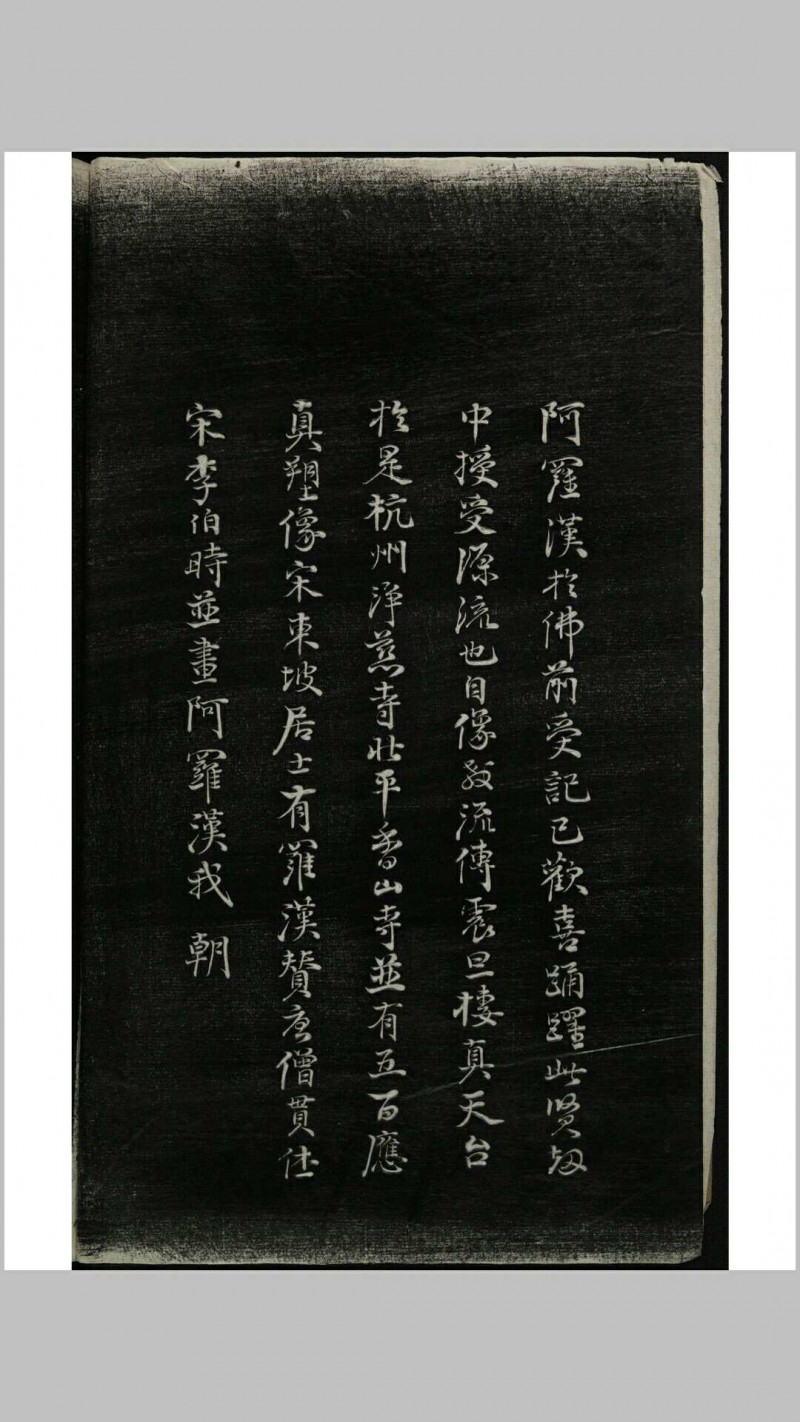 阿羅漢於佛前受記已歡喜踊躍此賢劫
中授受源流也自像教流傳震旦棲真天台
於是杭州淨慈寺北平香山寺並有五百應
真塑像宋東坡居士有羅漢贊唐僧貫休
宋李伯時並畫阿羅漢我 朝